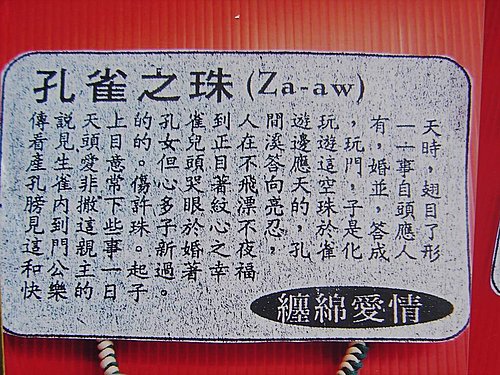 孔雀之珠(Za-aw)
傳說天上的孔雀到人間遊玩,有一天
看見頭目的女兒正在溪邊遊玩,一時
產生愛意。但頭目不答應這門婚事,
孔雀非常傷心哭著飛向天空,並自翅
膀內撒下許多眼紋漂亮的珠子,頭目
見到這些珠子於心不忍,於是答應了
這門親事。新婚之夜,孔雀化成人形
和公王一起過著幸福
快樂的日子。
纏綿愛情